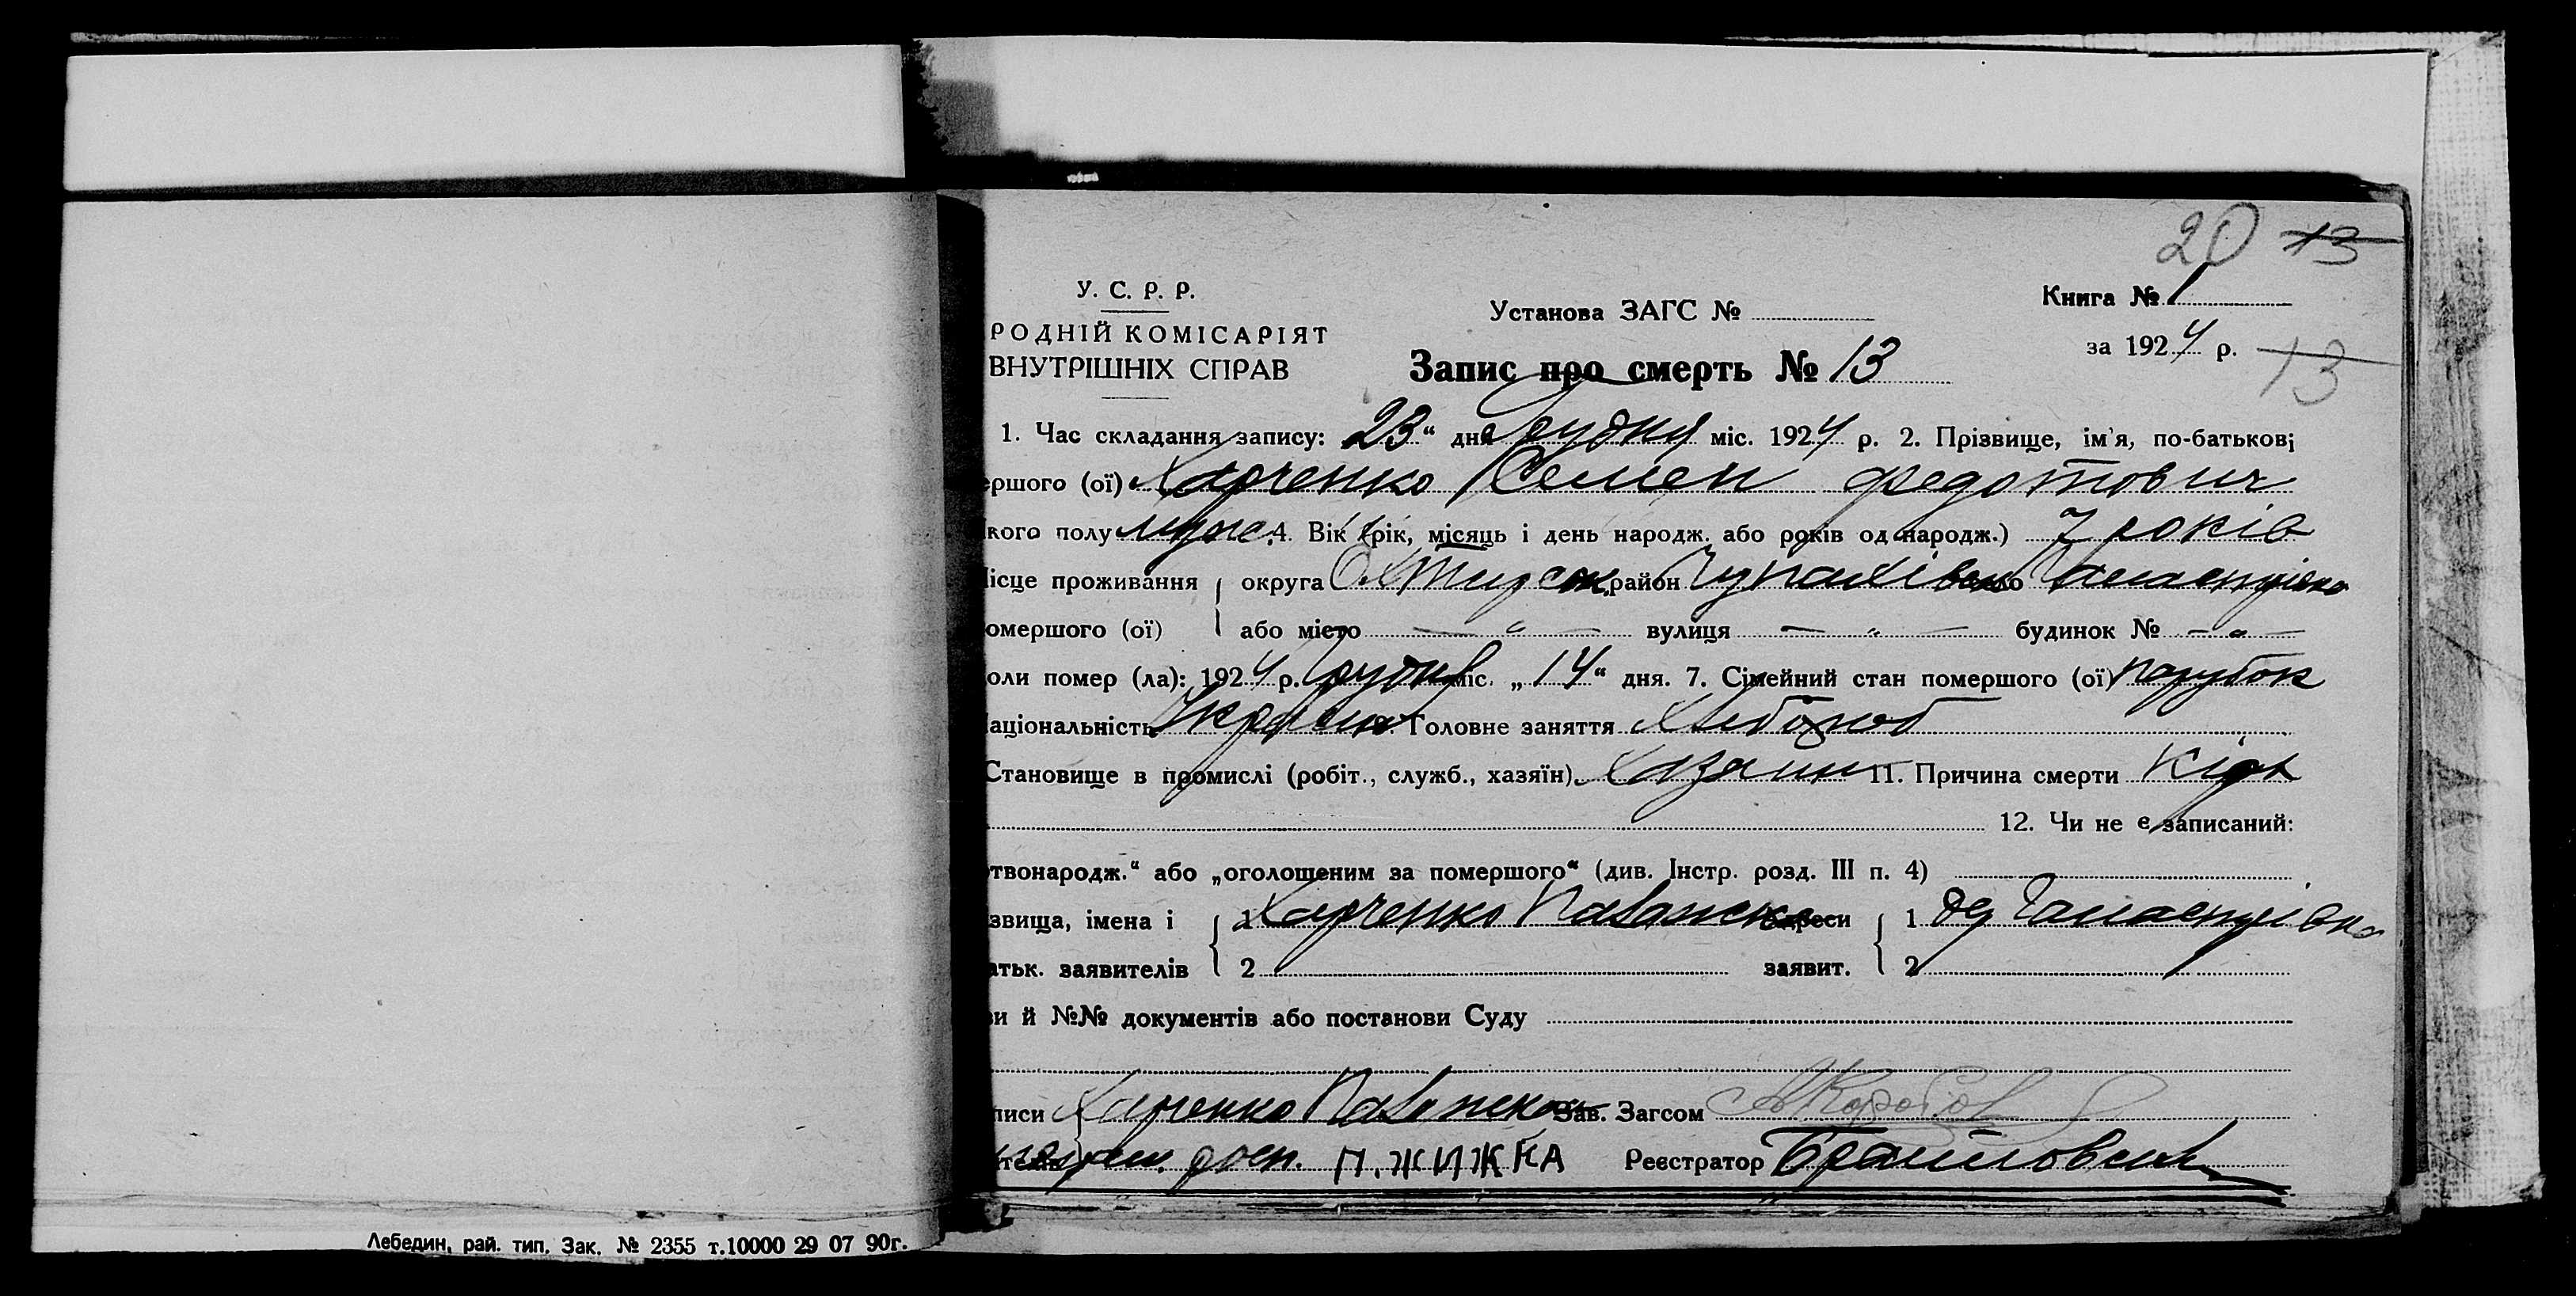 20 13
У. С. Р. Р.
РОДНІЙ КОМІСАРІЯТ
ВНУТРІШНІХ СПРАВ
Установа ЗАГС №
Книга № 1
за 1924 р.
13
Запис про смерть № 13
1. Час складання запису: 23“ дня Грудня міс. 1924 р. 2. Прізвище, ім'я, по-батькові
ершого (ої) Харченко Семен Федотович
кого полу муж. 4. Вік (рік, місяць і день народж. або років од народж.) 7 років
ісце проживання округа Охтирськ. район Чупахівськ село
омершого (ої) або місто — „ — вулиця — „ — будинок № — „ —
оли помер (ла): 1924 р. Грудня міс. „14“ дня. 7. Сімейний стан помершого (ої) парубок
аціональність Головне заняття Хлібороб
Становище в промислі (робіт., служб., хазяїн) Хазяин 11. Причина смерти Кірх
12. Чи не є записаний:
твонародж.“ або „оголошеним за помершого“ (див. Інстр. розд. III п. 4)
звища, імена і 1 Харченко адреси 1
атьк. заявителів 2 заявит. 2
и й №№ документів або постанови Суду
писи Харченко Зав. Загсом
росп. П. ЖИЖКА Реєстратор
Лебедин, рай. тип. Зак. № 2355 т.10000 29 07 90г.